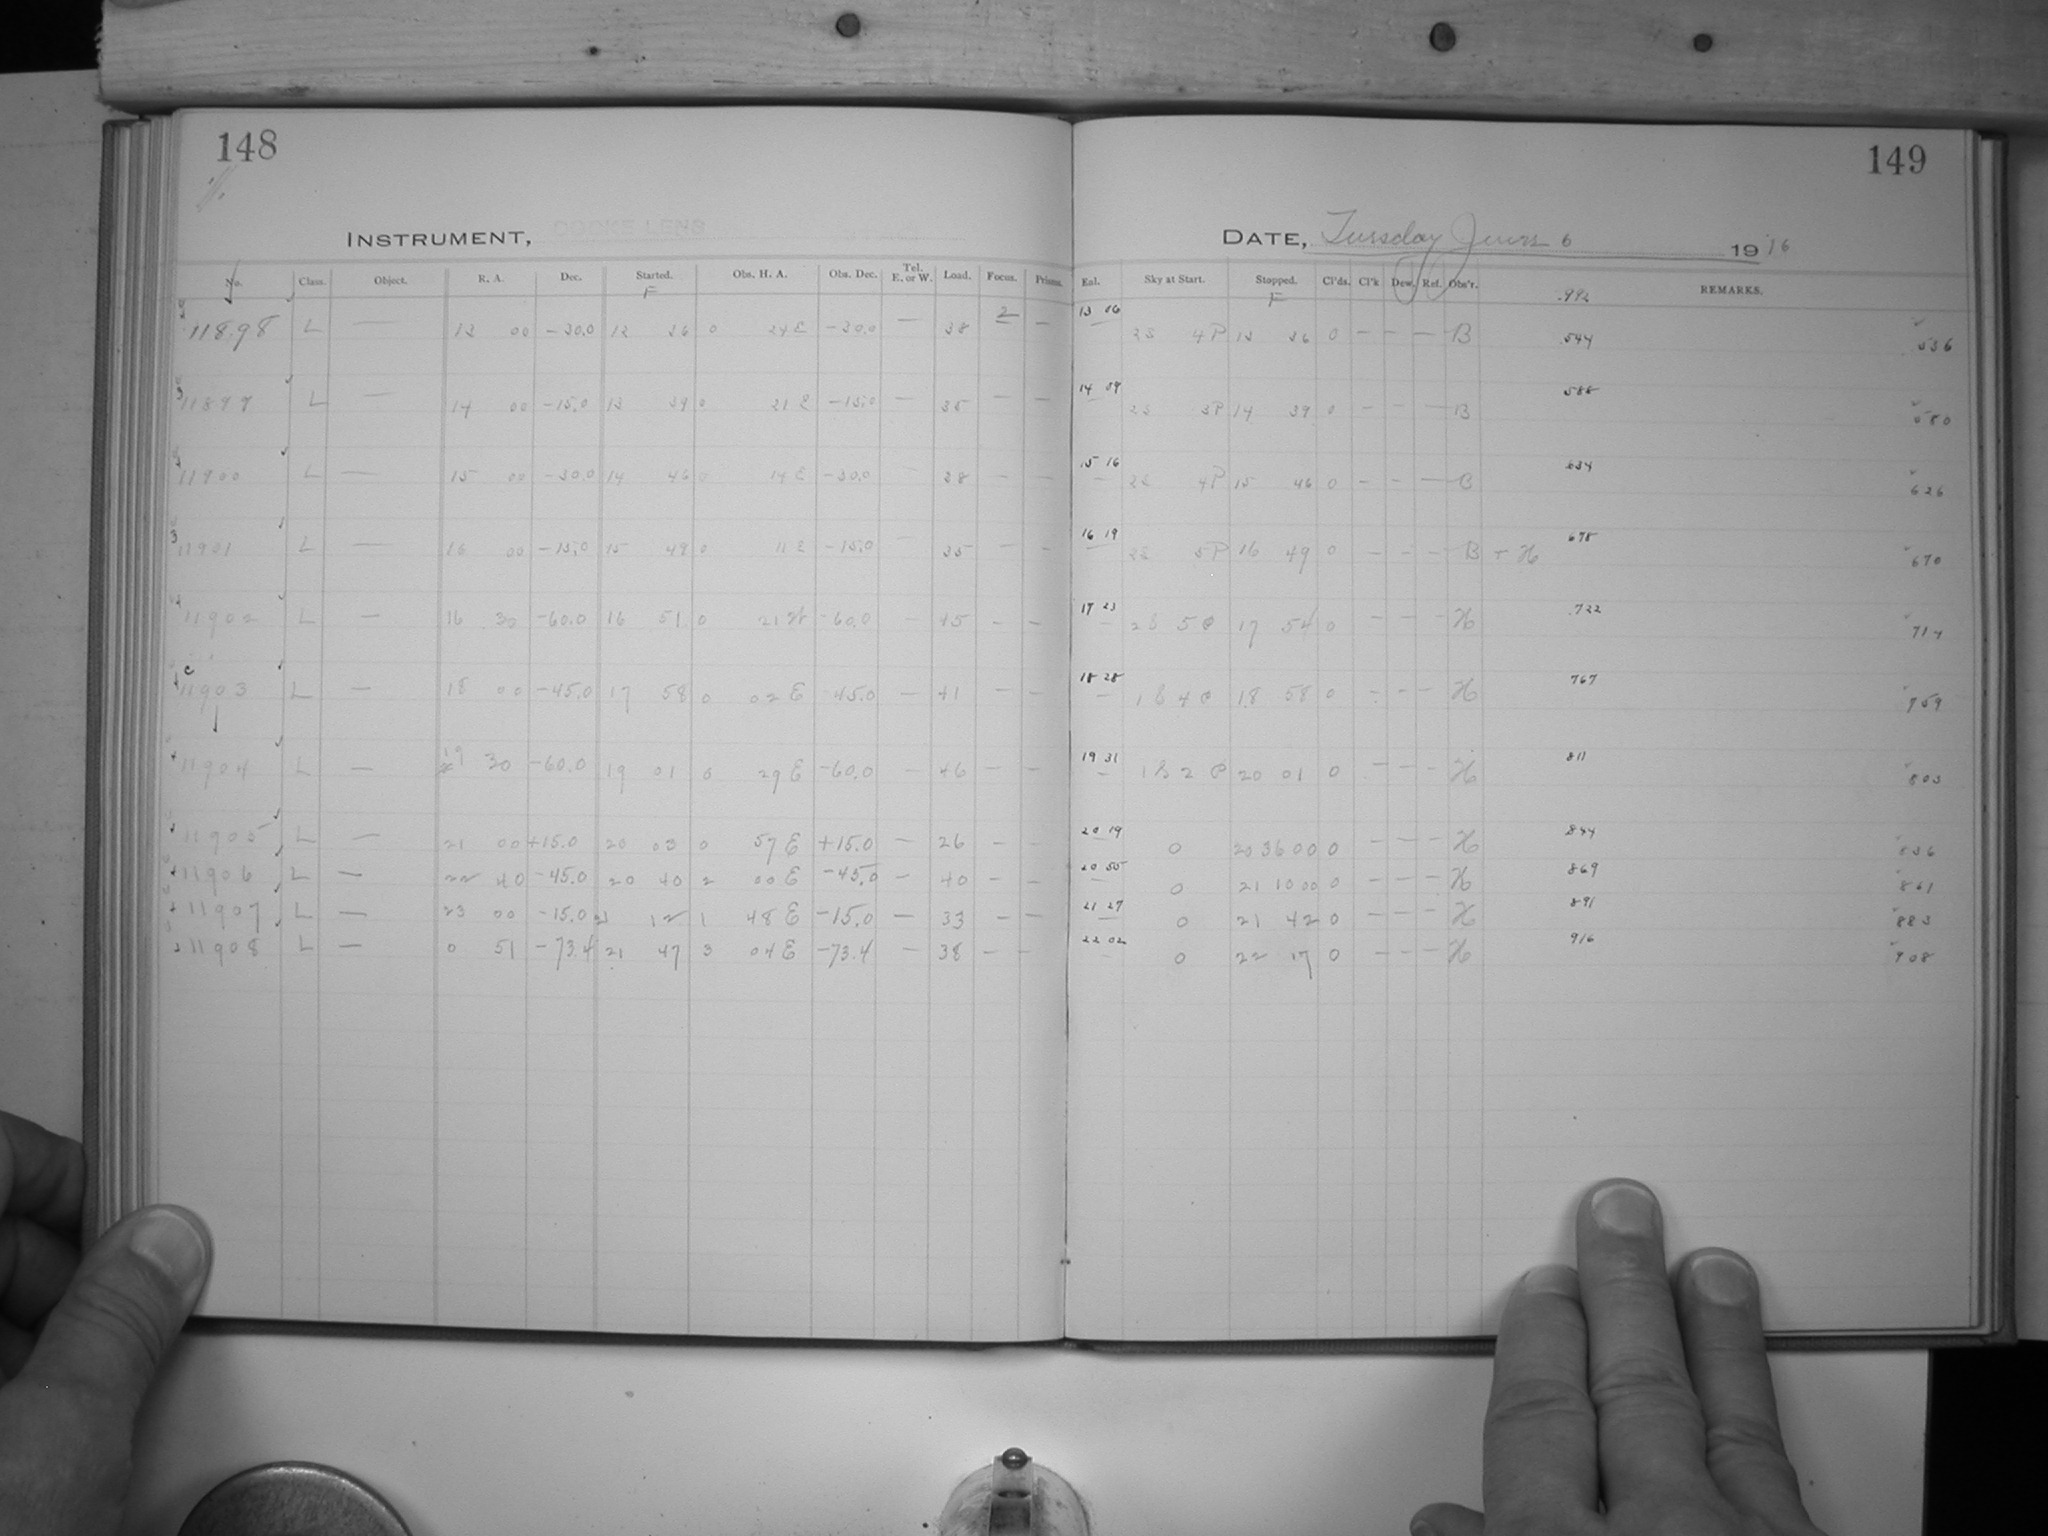 148
149
INSTRUMENT, COOKE LENS
DATE, Tuesday June 6 1916
No. Class. Object. R. A. Dec. Started. Obs. H. A. Obs. Dec. Tel. E. or W. Load. Focus. Prisms. Eal. Sky at Start. Stopped. Cl'ds. Cl'k Dew. Ref. Obs'r. REMARKS.
F F .992
11898 L — 13 00 -30.0 12 36 0 24 E -30.0 — 38 2 — 13 06 2S 4P 13 36 0 — — — B .544 536
11899 L — 14 00 -15.0 13 39 0 21 E -15.0 — 35 — — 14 09 2S 5P 14 39 0 — — — B 588 580
11900 L — 15 00 -30.0 14 46 0 14 E -30.0 — 38 — — 15 16 2S 4P 15 46 0 — — — B 634 626
11901 L — 16 00 -15.0 15 49 0 11 E -15.0 — 35 — — 16 19 2S 5P 16 49 0 — — — B + H 678 670
11902 L — 16 30 -60.0 16 51 0 21 W -60.0 — 45 — — 17 23 2S 5P 17 54 0 — — — H .722 714
c
11903 L — 18 00 -45.0 17 58 0 02 E -45.0 — 41 — — 18 28 1S 4P 18 58 0 — — — H 767 759
11904 L — 19 30 -60.0 19 01 0 29 E -60.0 — 46 — — 19 31 1S 2P 20 01 0 — — — H 811 803
11905 L — 21 00 +15.0 20 03 0 57 E +15.0 — 26 — — 20 19 0 20 36 00 0 — — — H 844 836
11906 L — 22 40 -45.0 20 40 2 00 E -45.0 — 40 — — 20 55 0 21 10 00 0 — — — H 869 861
11907 L — 23 00 -15.0 21 12 1 48 E -15.0 — 33 — — 21 27 0 21 42 0 — — — H 891 883
11908 L — 0 51 -73.4 21 47 3 04 E -73.4 — 38 — — 22 02 0 22 17 0 — — — H 916 908